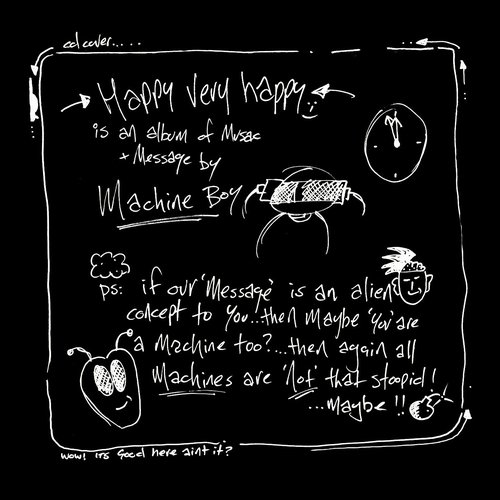 cd cover.....
Happy very happy
is an album of Musac
+ Message by
Machine Boy
ps: if our 'Message' is an alien
concept to you...then Maybe 'you' are
a machine too?...then again all
Machines are 'Not' that stoopid!
...Maybe!!
wow! its Good here aint it?